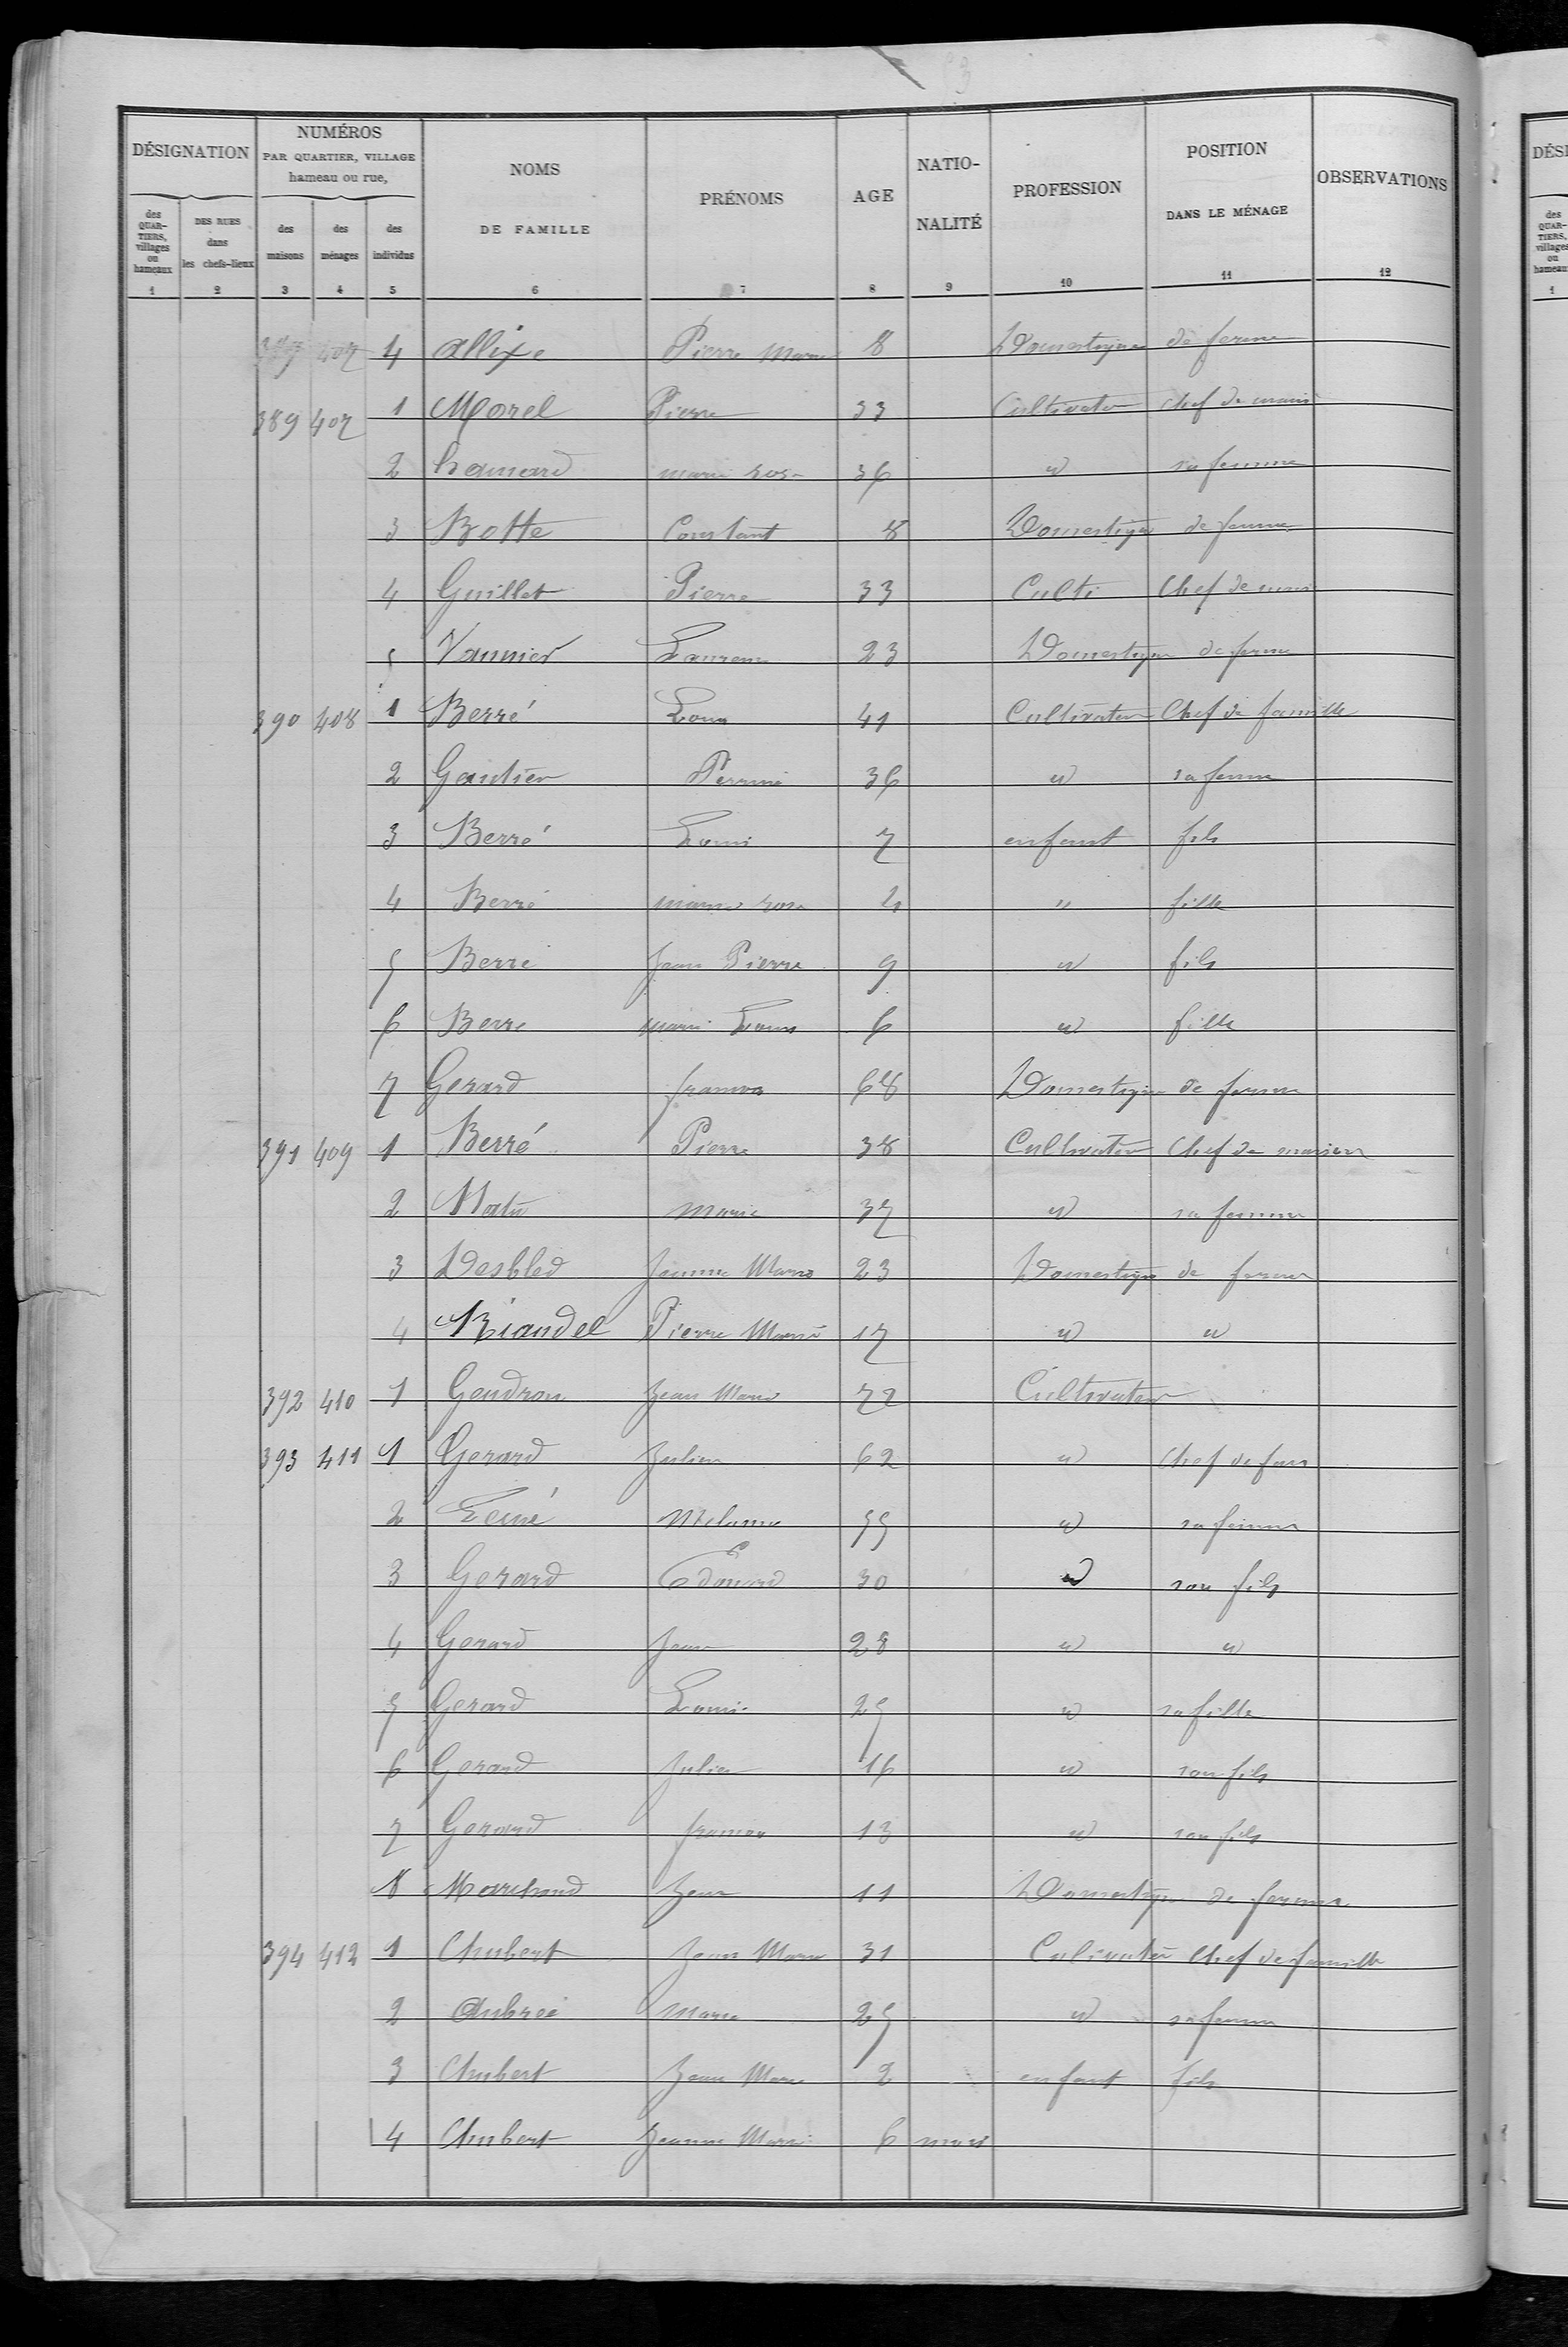 DÉSIGNATION
NUMÉROS
PAR QUARTIER, VILLAGE
hameau ou rue,
NOMS
DE FAMILLE
PRÉNOMS
AGE
NATIO-
NALITÉ
PROFESSION
POSITION
DANS LE MÉNAGE
OBSERVATIONS
des QUAR-TIERS, villages ou hameaux
DES RUES dans les chefs-lieux
des maisons
des ménages
des individus
1 2 3 4 5 6 7 8 9 10 11 12
407 4 Allixe Pierre Marie 8 Domestique de ferme
389 407 1 Morel Pierre 33 Cultivateur Chef de mais
2 hamard marie rose 36 id sa femme
3 Botte Constant 8 Domestique de ferme
4 Guillet Pierre 33 Culti Chef de mais
5 Vannier Laurence 23 Domestique de ferme
390 408 1 Berré Louis 41 Cultivateur Chef de famille
2 Gautier Perrine 36 id sa femme
3 Berré Louis 7 enfant fils
4 Berré marie rose 4 " fille
5 Berre Jean Pierre 9 id fils
6 Berre marie Louise 6 id fille
7 Gerard francois 68 Domestique de ferme
391 409 1 Berré Pierre 38 Cultivateur Chef de maison
2 marie 37 id sa femme
3 Desbled Jeanne Marie 23 Domestique de ferme
4 Riaudel Pierre Marie 17 id id
392 410 1 Gendron Jean Marie 72 Cultivateur
393 411 1 Gerard Julien 62 id Chef de fam
2 Melanie 55 id sa femme
3 Gerard Edouard 30 id son fils
4 Gerard Jean 28 id id
5 Gerard Louise 25 id sa fille
6 Gerard Julien 16 id son fils
7 Gerard francois 13 id son fils
8 Marchand Jean 11 Domestique de ferme
394 412 1 Aubert Jean Marie 31 Culivateur Chef de famille
2 Aubree Marie 25 id sa femme
3 Aubert Jean Marie 2 enfant fils
4 Aubert Jeanne Marie 6 mois
DÉSI
des QUAR-TIERS, villages ou hameau
1